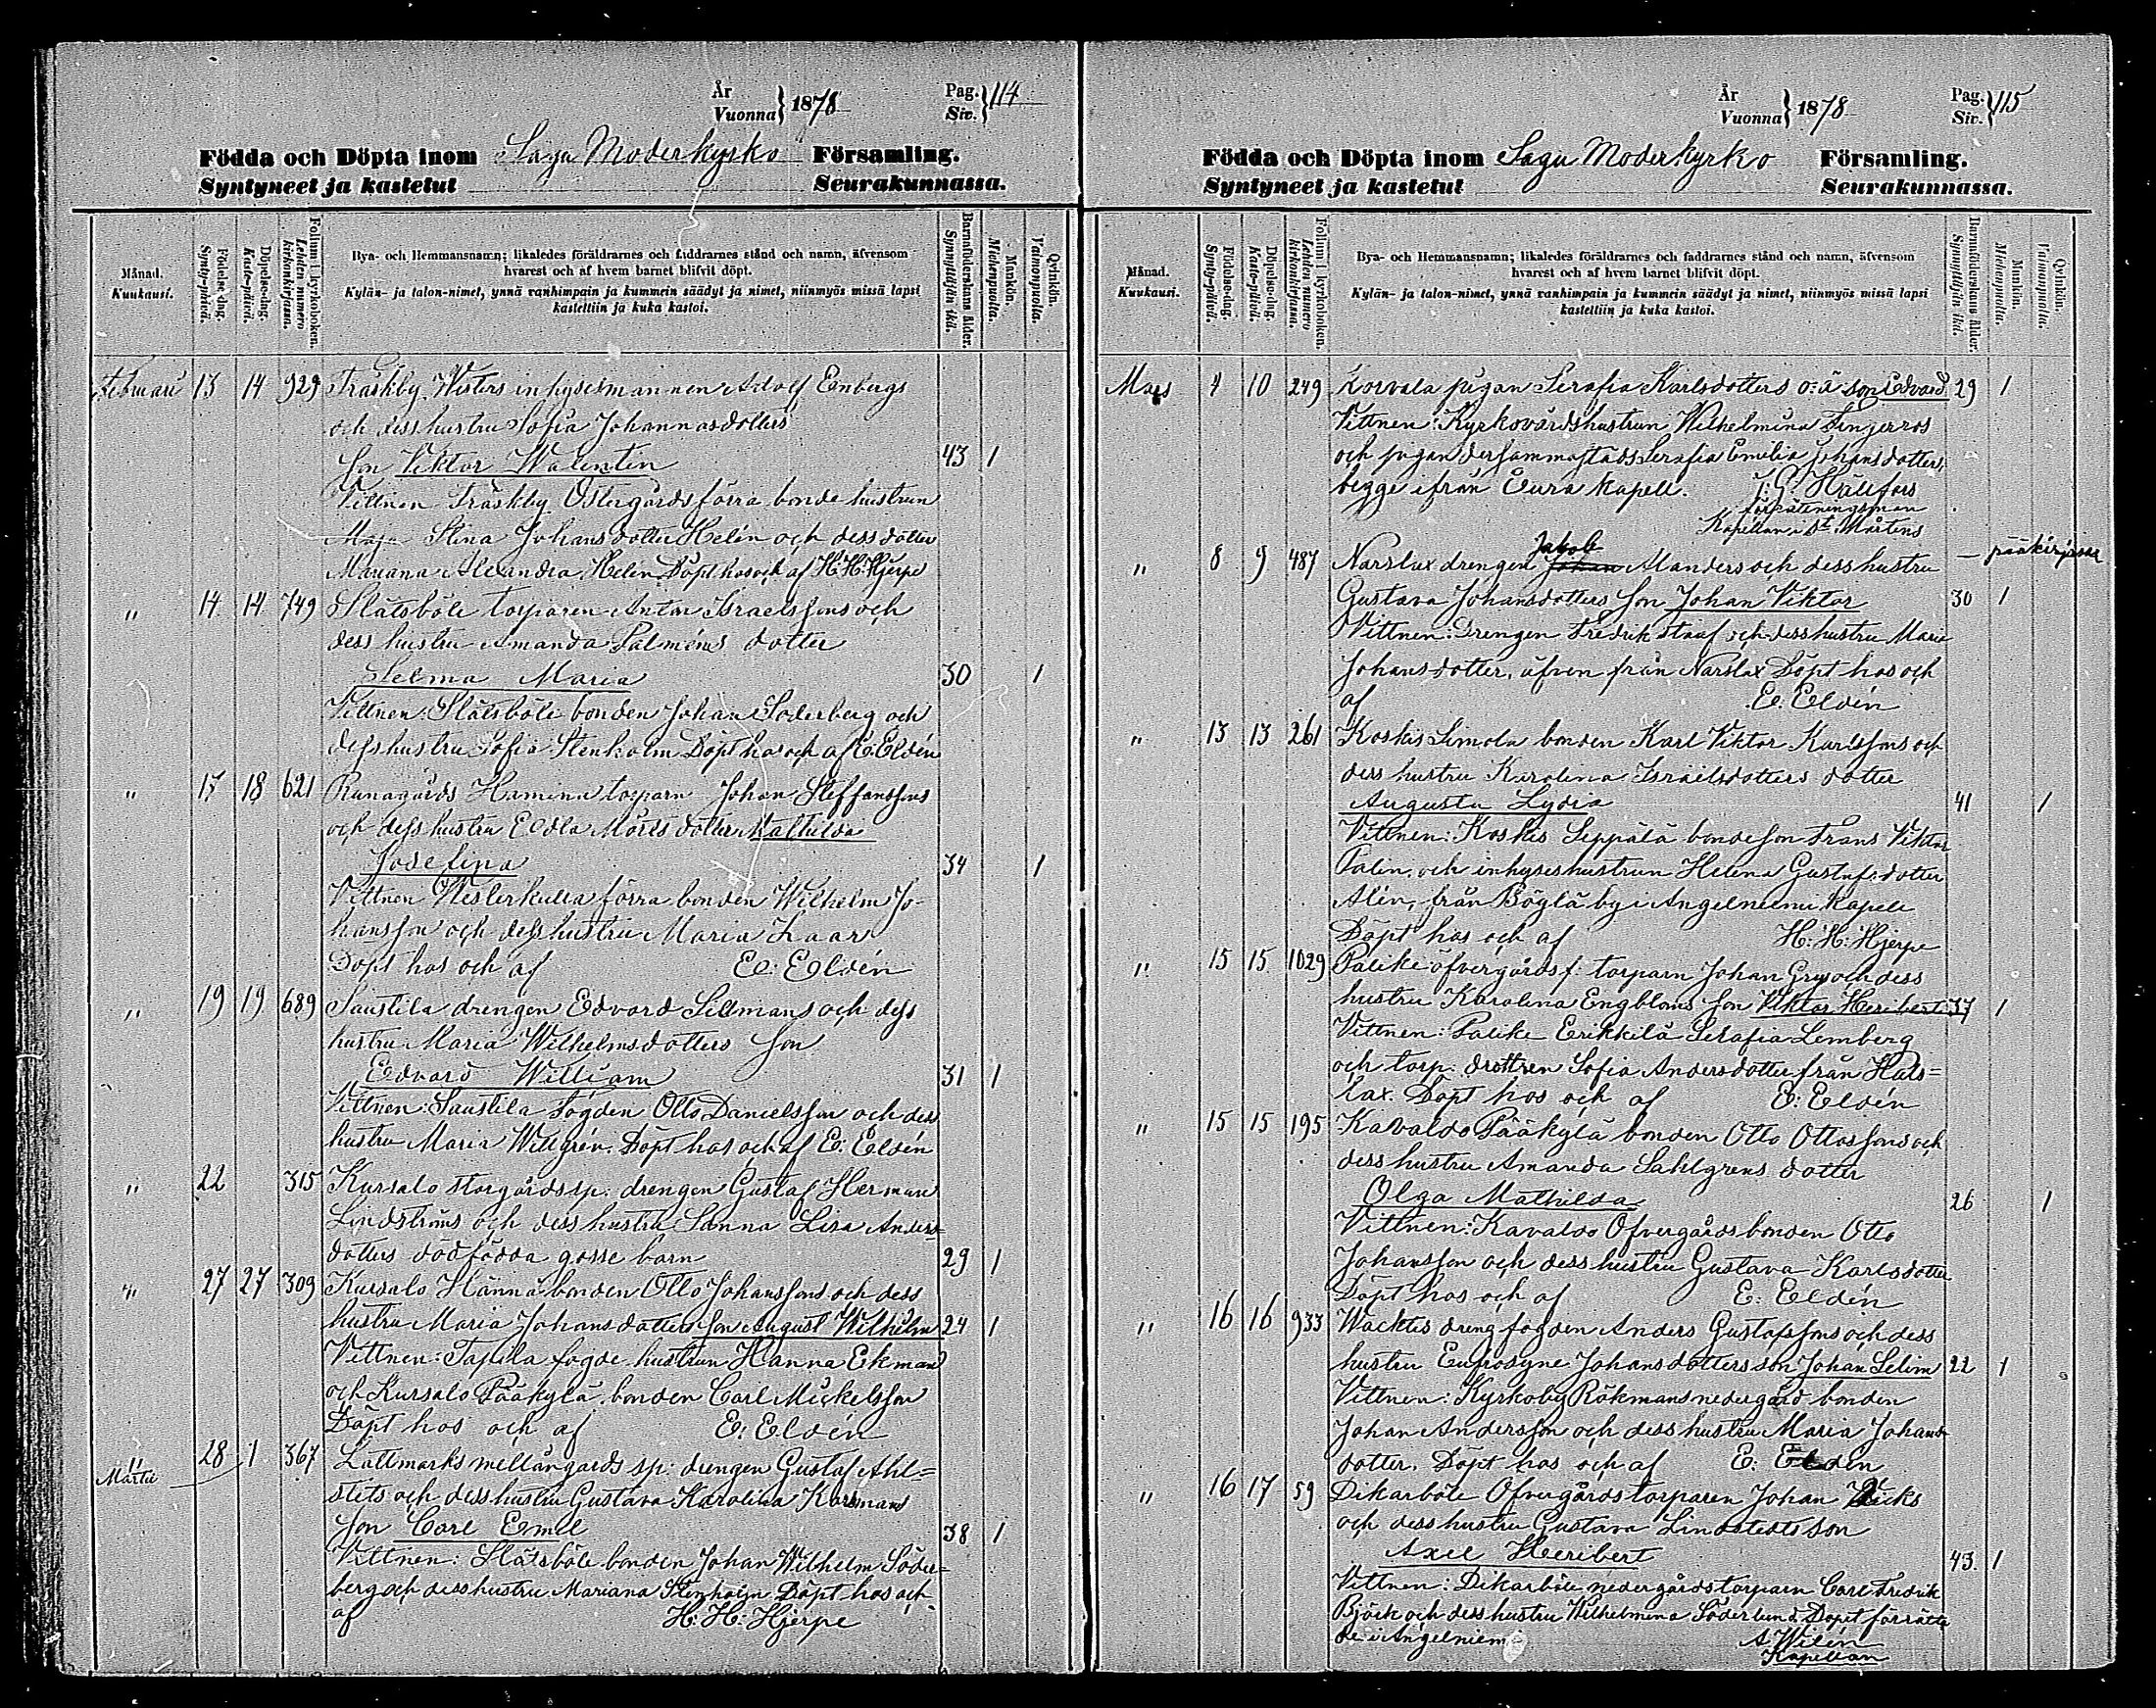 År
Vuonna } 1878
Pag.
Siv. } 114
Födda och Döpta inom Sagu Moderkyrko Församling.
Syntyneet ja kastetut Seurakunnassa.
Månad.
Kuukausi.
Födelse-dag.
Synty-päivä.
Döpelse-dag.
Kaste-päivä.
Folium i kyrkoboken.
Lehden numero kirkonkirjassa.
Bya- och Hemmansnamn; likaledes föräldrarnes och faddrarnes stånd och namn, äfvensom
hvarest och af hvem barnet blifvit döpt.
Kylän- ja talon-nimet, ynnä vanhimpain ja kummein säädyt ja nimet, niinmyös missä lapsi
kastettiin ja kuka kastoi.
Barnaföderskans ålder.
Synnyttäjän ikä.
Mankön.
Miehenpuolia.
Qvinkön.
Vaimonpuolia.
Februari 13 14 929 Träskby Westers inhysesmannen Adolf Enbergs
och dess hustru Sofia Johannasdotters
son Viktor Walentin 43 1
Vittnen Träskby Östergårds förra bonde hustrun
Maja Stina Johansdotter Helén och dess dotter
Mariana Alexandra Helén Döpt hos och af H. H. Hjerpe
" 14 14 749 Slätsböle torparen Anton Israelssons och
dess hustru Amanda Salméns dotter
Selma Maria 30 1
Vittnen: Slätsböle bonden Johan Söderberg och
dess hustru Sofia Stenholm Döpt hos och af E. Eldén
" 17 18 621 Runagårds Hamina torparn Johan Steffanssons
och dess hustru Edla Mårtsdotter Mathilda
Josefina 34 1
Vittnen Westerkulla förra bonden Wilhelm Jo-
hansson och dess hustru Maria
Döpt hos och af E: Eldén
" 19 19 689 Saustila drengen Edvard Sillmans och dess
hustru Maria Wilhelmsdotters son
Edvard William 31 1
Vittnen: Saustila fogden Otto Danielsson och dess
hustru Maria Willgrén. Döpt hos och af E. Eldén
" 22 315 Kursalo storgårds sp: drengen Gustaf Herman
Lindströms och dess hustru Sanna Lisa Anders-
dotters dödfödda gosse barn 29 1
" 27 27 309 Kursalo Hännä bonden Otto Johanssons och dess
hustru Maria Johansdotters son August Wilhelm 24 1
Vittnen: Tapila fogde hustrun Hanna Ekman
och Kursalo Pääkylä bonden Carl Mickelsson
Döpt hos och af E: Eldén
" Martii 28 1 367 Lattmarks mellångards sp: drengen Gustaf Ahl-
stets och dess hustru Gustava Karolina Karsmans
son Carl Emil 38 1
Vittnen: Slätsböle bonden Johan Wilhelm Söder-
berg och dess hustru Mariana Stenholm Döpt hos och
af H: H: Hjerpe
År
Vuonna } 1878
Pag.
Siv. } 115
Födda och Döpta inom Sagu Moderkyrko Församling.
Syntyneet ja kastetut Seurakunnassa.
Månad.
Kuukausi.
Födelse-dag.
Synty-päivä.
Döpelse-dag.
Kaste-päivä.
Folium i kyrkoboken.
Lehden numero kirkonkirjassa.
Bya- och Hemmansnamn; likaledes föräldrarnes och faddrarnes stånd och namn, äfvensom
hvarest och af hvem barnet blifvit döpt.
Kylän- ja talon-nimet, ynnä vanhimpain ja kummein säädyt ja nimet, niinmyös missä lapsi
kastettiin ja kuka kastoi.
Barnaföderskans ålder.
Synnyttäjän ikä.
Mankön.
Miehenpuolia.
Qvinkön.
Vaimonpuolia.
Mars 4 10 249 Korvala pigan Serafia Karlsdotters o: ä son Edvard 29 1
Vittnen: Kyrkovärdshustrun Wilhelmina Fingerros
och pigan dersammastäds Serafia Emilia Johansdotter,
begge ifrån Eura Kapell. J: G: Hällfors
Kapellan i St Mårtens
" 8 9 487 Narslax drengen Jakob Alanders och dess hustru — pääkirjassa
Gustava Johansdotters son Johan Viktor 30 1
Vittnen: Drengen Fredrik Staaf och dess hustru Maria
Johansdotter, äfven från Narslax Döpt hos och
af E. Eldén
" 13 13 261 Koskis Simola bonden Karl Viktor Karlssons och
dess hustru Karolina Israelsdotters dotter
Augusta Lydia 41 1
Vittnen: Koskis Seppälä bondeson Frans Viktor
Palin, och inhyseshustrun Helena Gustafsdotter
Alén, från Böylä by i Angelniemi Kapell
Döpt hos och af H: H: Hjerpe
" 15 15 1029 Palike öfvergårds f: torparn Johan Grys och dess
hustru Karolina Engbloms son Viktor Heribert 37 1
Vittnen: Palike Erikkilä Serafia Lemberg
och torp: drottren Sofia Andersdotter från Hals-
lax. Döpt hos och af E: Eldén
" 15 15 195 Kavaldo Pääkylä bonden Otto Ottossons och
dess hustru Amanda Sahlgrens dotter
Olga Mathilda 26 1
Vittnen: Kavaldo Öfvergårds bonden Otto
Johansson och dess hustru Gustava Karlsdotter
Döpt hos och af E: Eldén
" 16 16 933 Wacktis dreng fogden Anders Gustafssons och dess
hustru Eufrosyne Johansdotters son Johan Selim 22 1
Vittnen: Kyrkoby Räkmans nedergård bonden
Johan Andersson och dess hustru Maria Johans-
dotter. Döpt hos och af E: Eldén
" 16 17 59 Dikarböle Öfvergårds torparen Johan
och dess hustru Gustava Lindstedts son
Axel Heribert 43 1
Vittnen: Dikarböle nedergårds torparn Carl Fredrik
Björk och dess hustru Wilhelmina Söderlund Dopet förrätta-
de i Angelniemi A. Wilén
Kapellan